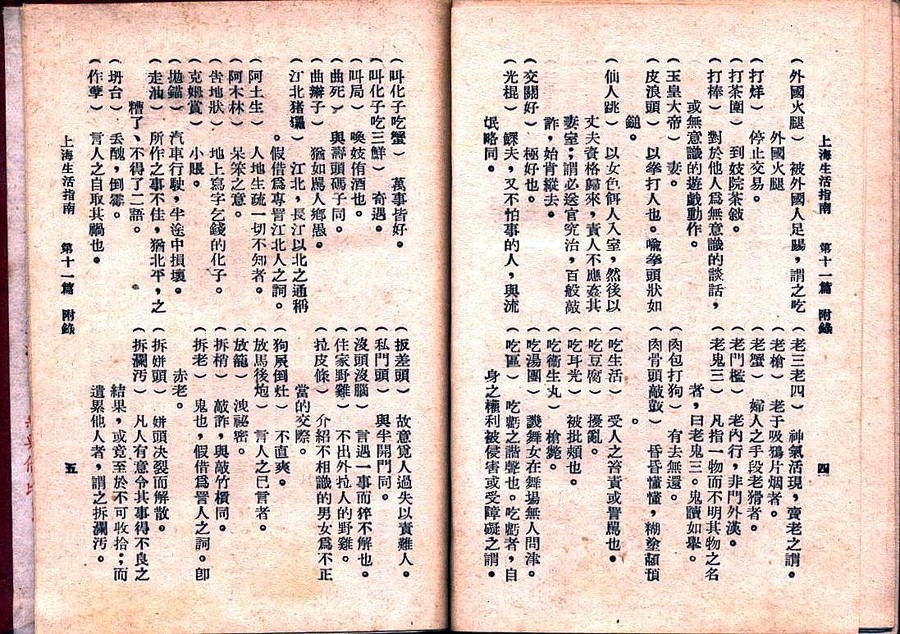 上海生活指南　第十一篇　附錄
四
（外國火腿）　被外國人足踢，謂之吃
外國火腿
（打烊）　停止交易。
（打茶圍）　到妓院茶敍。
（打棒）　對於他人為無意識的談話，
或無意識的遊戲動作。
（玉皇大帝）　妻。
（皮浪頭）　以拳打人也。喩拳頭狀如
鎚。
（仙人跳）　以女色餌人入室，然後以
丈夫資格歸來，責人不應姦其
妻室；謂必送官究治，百般敲
詐，始肯縱去。
（交關好）　極好也。
（光棍）　鰥夫，又不怕事的人，與流
氓略同。
（老三老四）　神氣活現，賣老之謂。
（老槍）　老于吸鴉片烟者。
（老蟹）　婦人之手段老猾者。
（老門檻）　老內行，非門外漢。
（老鬼三）　凡指一物而不明其物之名
者，曰老鬼三。鬼讀如舉。
（肉包打狗）　有去無還。
（肉骨頭敲鼓）　昏昏懂懂，糊塗顢頇
。
（吃生活）　受人之笞責或詈罵也。
（吃豆腐）　擾亂。
（吃耳光）　被批頰也。
（吃衞生丸）　槍斃。
（吃湯團）　譏舞女在舞場無人問津。
（吃匾）　吃虧之諧聲也。吃虧者，自
身之權利被侵害或受障礙之謂。
上海生活指南　第十一篇　附錄
五
（叫化子吃蟹）　萬事皆好。
（叫化子吃三鮮）　奇遇。
（叫局）　喚妓侑酒也。
（曲死）　與壽頭碼子同。
（曲辮子）　猶如罵人鄉愚。
（江北猪玀）　江北，長江以北之通稱
。假借為專詈江北人之詞。
（阿土生）　人地生疏一切不知者。
（阿木林）　呆笨之意。
（告地狀）　地上寫字乞錢的化子。
（克姆賞）　小賬。
（拋錨）　汽車行駛，半途中損壞。
（走油）　所作之事不佳，猶北平，之
糟了、不得了二語。
（坍台）　丢醜，倒霉。
（作孽）　言人之自取其禍也。
（扳差頭）　故意覓人過失以責難人。
（私門頭）　與半開門同。
（沒頭沒腦）　言遇一事而猝不解也。
（住家野雞）　不出外拉人的野雞。
（拉皮條）　介紹不相識的男女為不正
當的交際。
（狗屎倒灶）　不直爽。
（放馬後炮）　言人之已言者。
（放龍）　洩祕密。
（拆梢）　敲詐，與敲竹槓同。
（拆老）　鬼也，假借為詈人之詞。卽
赤老。
（拆姘頭）　姘頭决裂而解散。
（拆瀾汚）　凡人有意令其事得不良之
結果，或竟至於不可收拾；而
遺累他人者，謂之拆瀾汚。